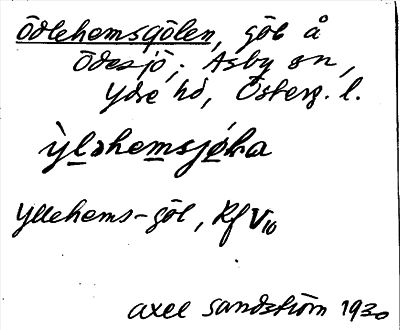 Ödlehemsgölen, göl å
Ödesjö, Asby sn,
Ydre hd, Österg. l.
ỳl̲əhem̲sjǿ̲ka
Yllehems-göl, Rf V10
Axel Sandström 1930